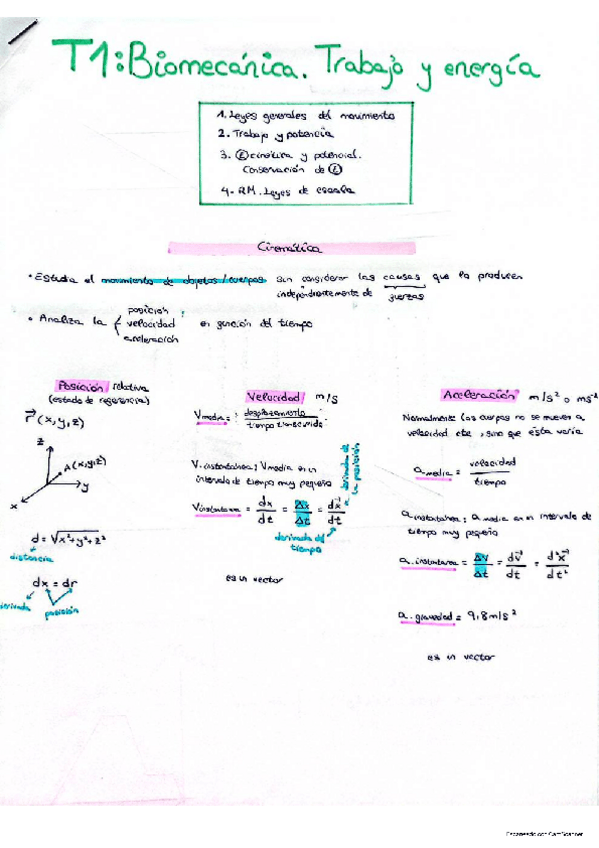 T1: Biomecánica. Trabajo y energía
1. Leyes generales del movimiento
2. Trabajo y potencia
3. Ⓔ cinética y potencial.
Conservación de Ⓔ
4. RM. Leyes de escala
Cinemática
• Estudia el movimiento de objetos/cuerpos sin considerar las causas que lo producen
independientemente de fuerzas
• Analiza la { posición
velocidad
aceleración
en función del tiempo
Posición relativa
(estado de referencia)
r⃗ (x,y,z)
z
A(x,y,z)
y
x
d = √x²+y²+z²
distancia
dx = dr
derivada
posición
Velocidad m/s
V media = desplazamiento / tiempo transcurrido
V. instantánea; V media en un
intervalo de tiempo muy pequeño
V instantánea = dx/dt = Δx/Δt = dx⃗/dt
derivada de la posición
derivada del tiempo
es un vector
Aceleración m/s² o ms⁻²
Normalmente los cuerpos no se mueven a
velocidad cte, sino que ésta varía
a. media = velocidad / tiempo
a instantánea; a media en un intervalo de
tiempo muy pequeño
a. instantánea = Δv/Δt = dv⃗/dt = d²x⃗/dt²
a. gravedad = 9,8 m/s²
es un vector
Escaneado con CamScanner